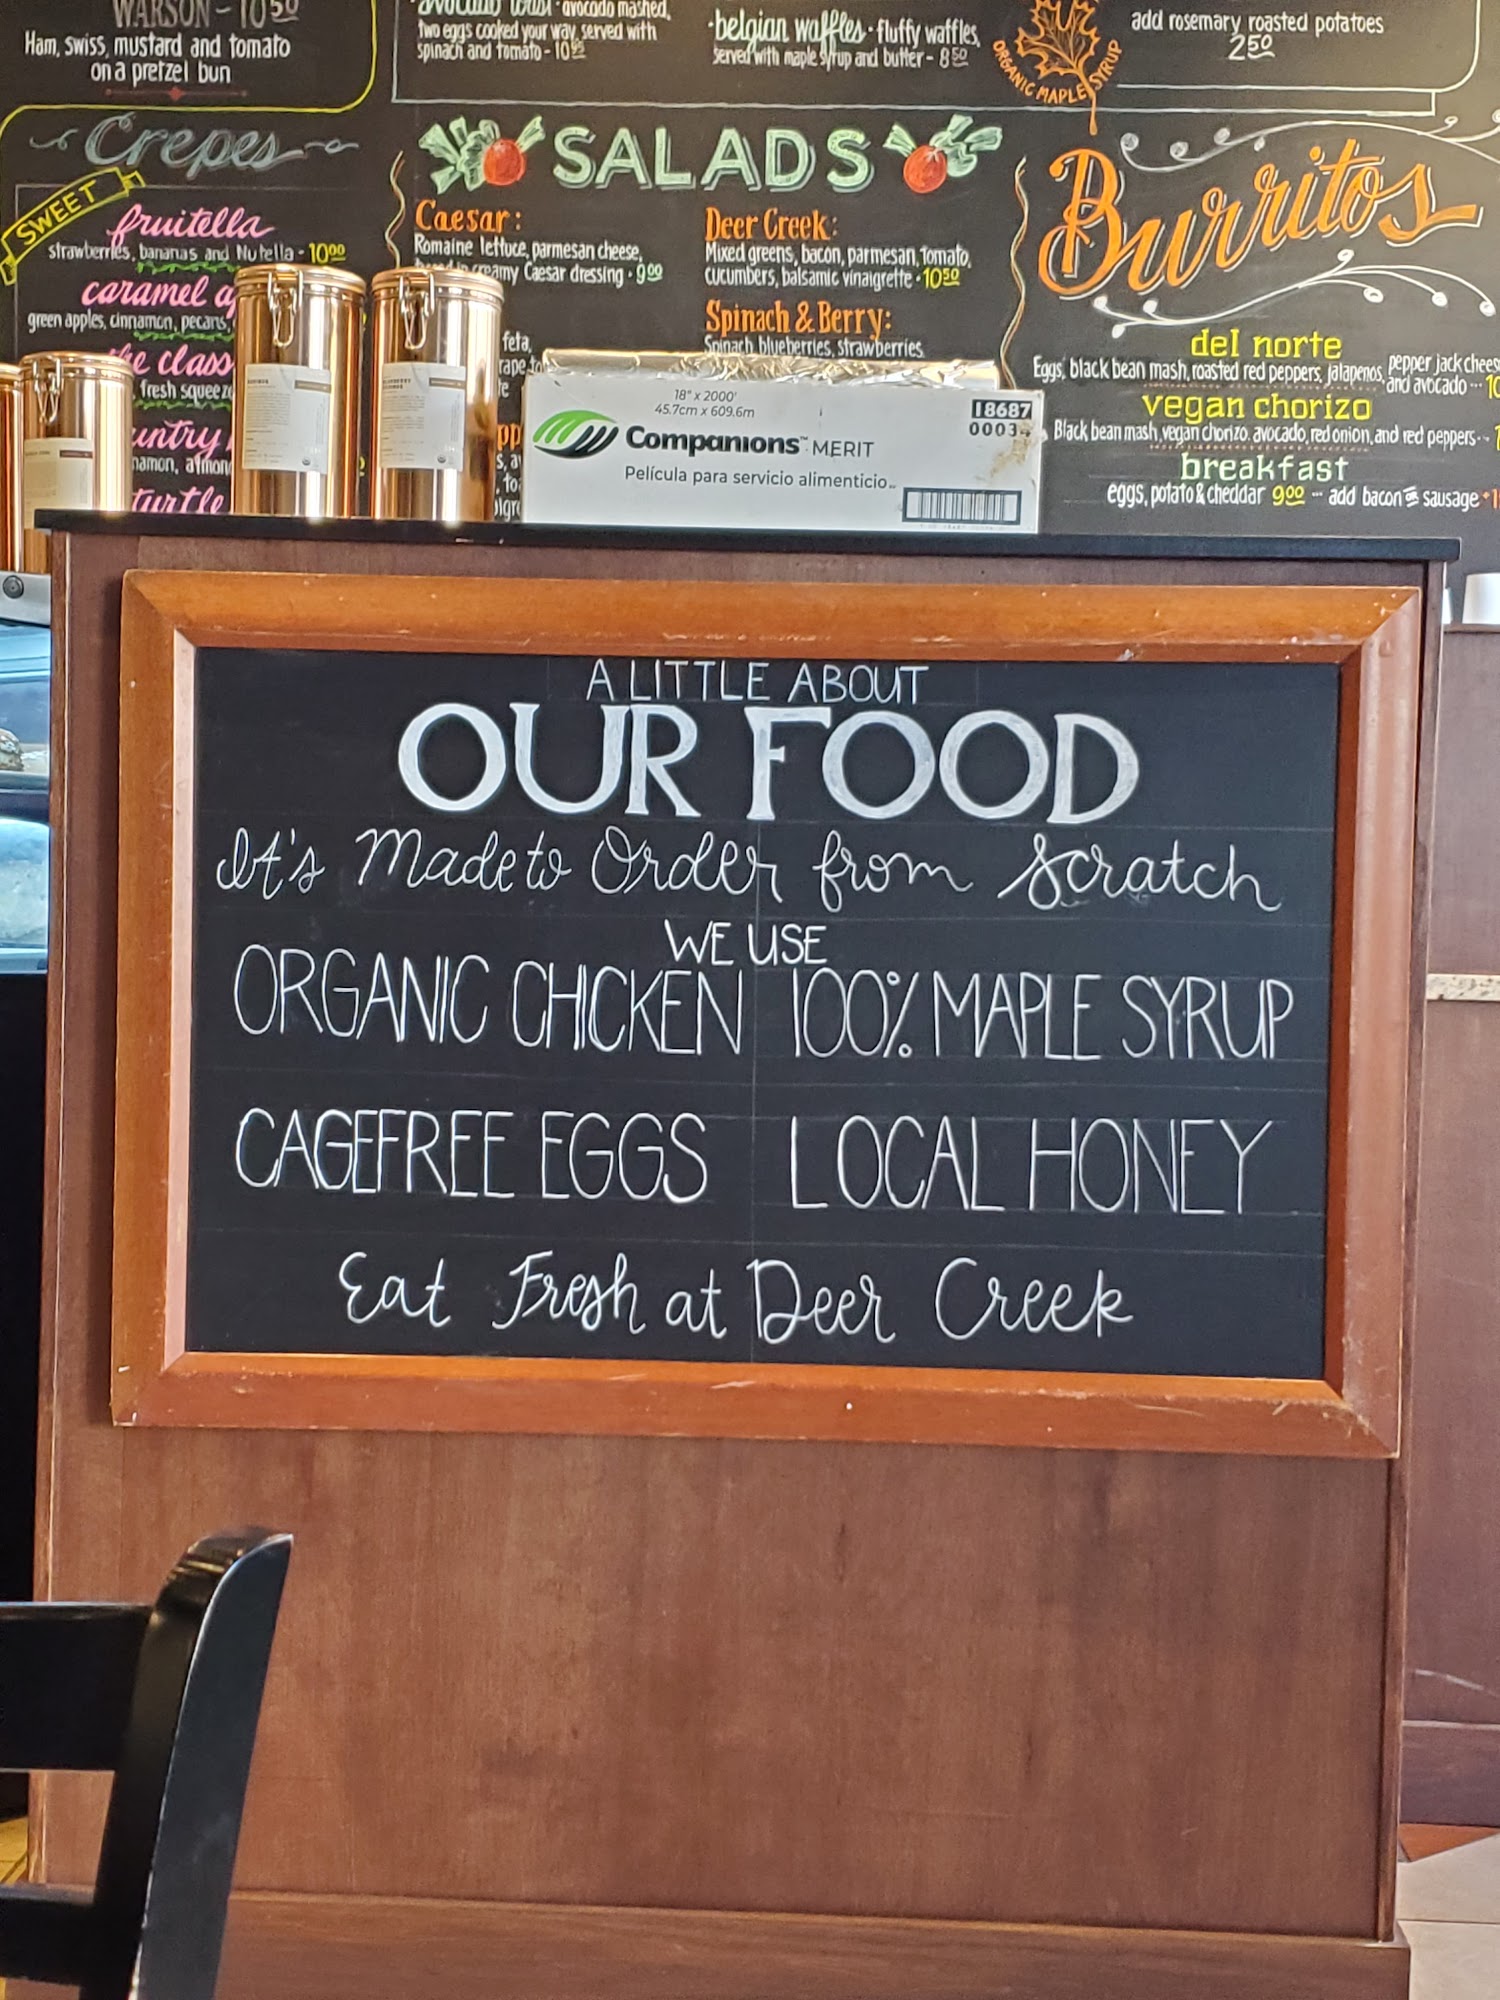 WARSON - 10 50
Ham, swiss, mustard and tomato
on a pretzel bun
avocado toast · avocado mashed,
two eggs cooked your way, served with
spinach and tomato - 10
·belgian waffles · fluffy waffles,
served with maple syrup and butter - 8 50
ORGANIC MAPLE SYRUP
add rosemary roasted potatoes
2 50
Crepes
SWEET
fruitella
strawberries, bananas and Nutella - 10 00
caramel
green apples, cinnamon, pecans,
fresh
SALADS
Caesar:
Romaine lettuce, parmesan cheese,
creamy Caesar dressing · 9 00
feta,
Deer Creek:
Mixed greens, bacon, parmesan, tomato,
cucumbers, balsamic vinaigrette · 10 50
Spinach & Berry:
Spinach, blueberries, strawberries
Burritos
del norte
Eggs, black bean mash, roasted red peppers, jalapenos, pepper jack
and avocado
vegan chorizo
Black bean mash, vegan chorizo, avocado, red onion, and red peppers
breakfast
eggs, potato & cheddar 9 00 -- add bacon or sausage
turtle
18" x 2000'
45.7cm x 609.6m
18687
Companions™ MERIT
Película para servicio alimenticio
A LITTLE ABOUT
OUR FOOD
It's Made to Order from Scratch
WE USE
ORGANIC CHICKEN 100% MAPLE SYRUP
CAGEFREE EGGS LOCAL HONEY
Eat Fresh at Deer Creek